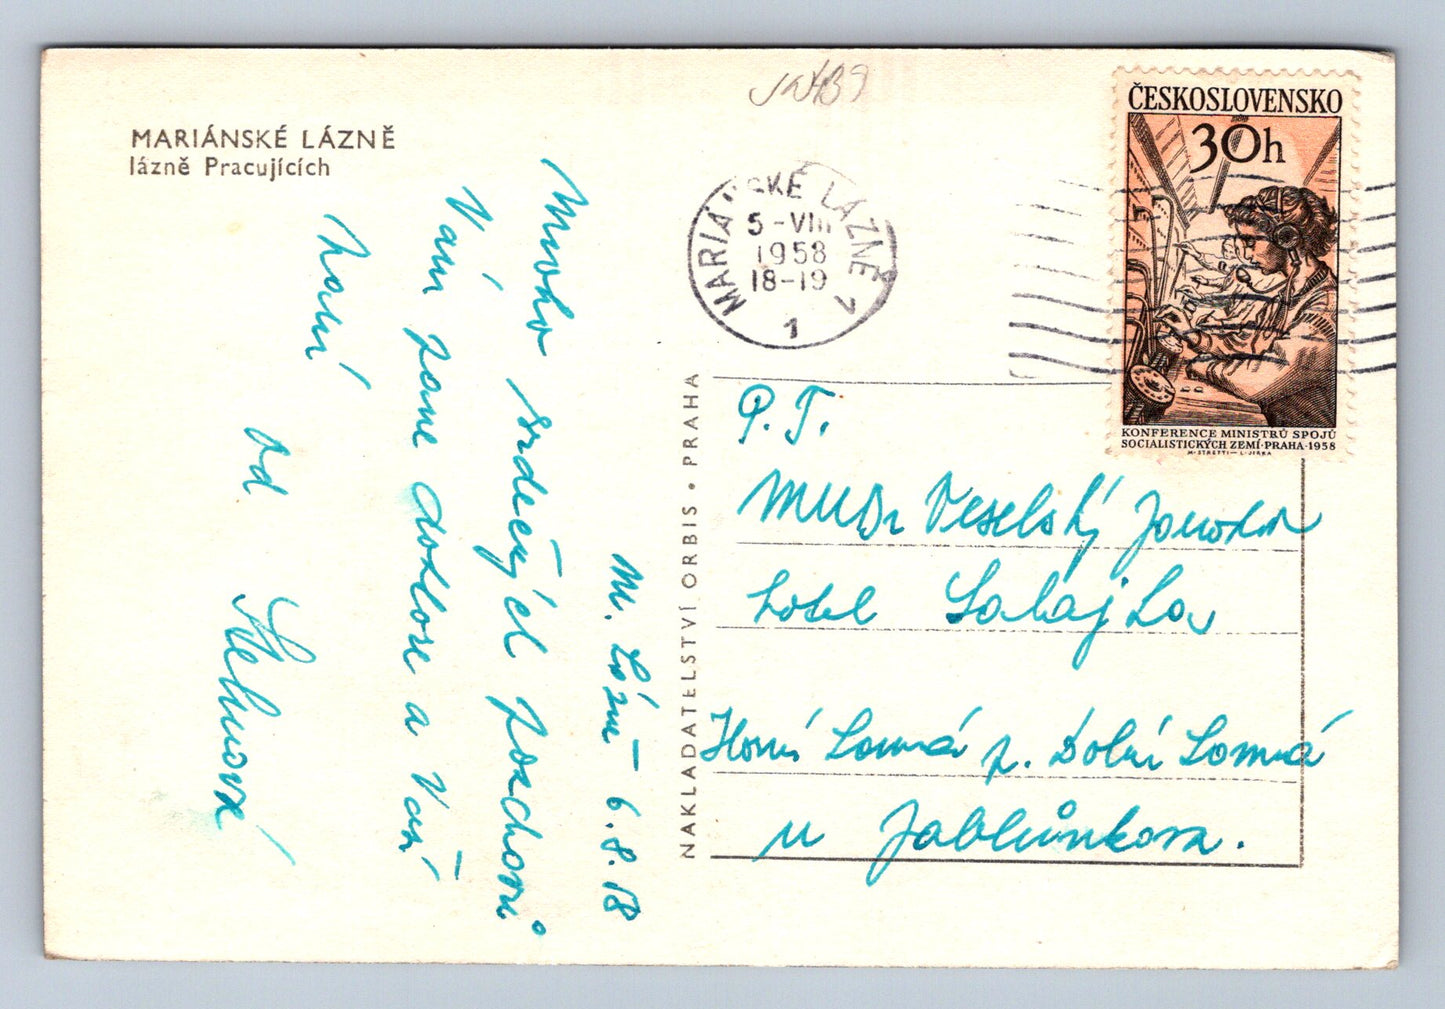 MARIÁNSKÉ LÁZNĚ
lázně Pracujících
M. Lázně 6.8.58
Mnoho srdečných pozdravů
Vám pane doktore a Vaší
paní
od
NAKLADATELSTVÍ ORBIS • PRAHA
MARIÁNSKÉ LÁZNĚ 1
5-VIII
1958
18-19
1
ČESKOSLOVENSKO
30h
KONFERENCE MINISTRŮ SPOJŮ
SOCIALISTICKÝCH ZEMÍ·PRAHA·1958
M·STRETTI—L·JIRKA
P. T.
MUDr Veselský
hotel Salajka
Horní Lomná p. Dolní Lomná
u Jablůnkova.